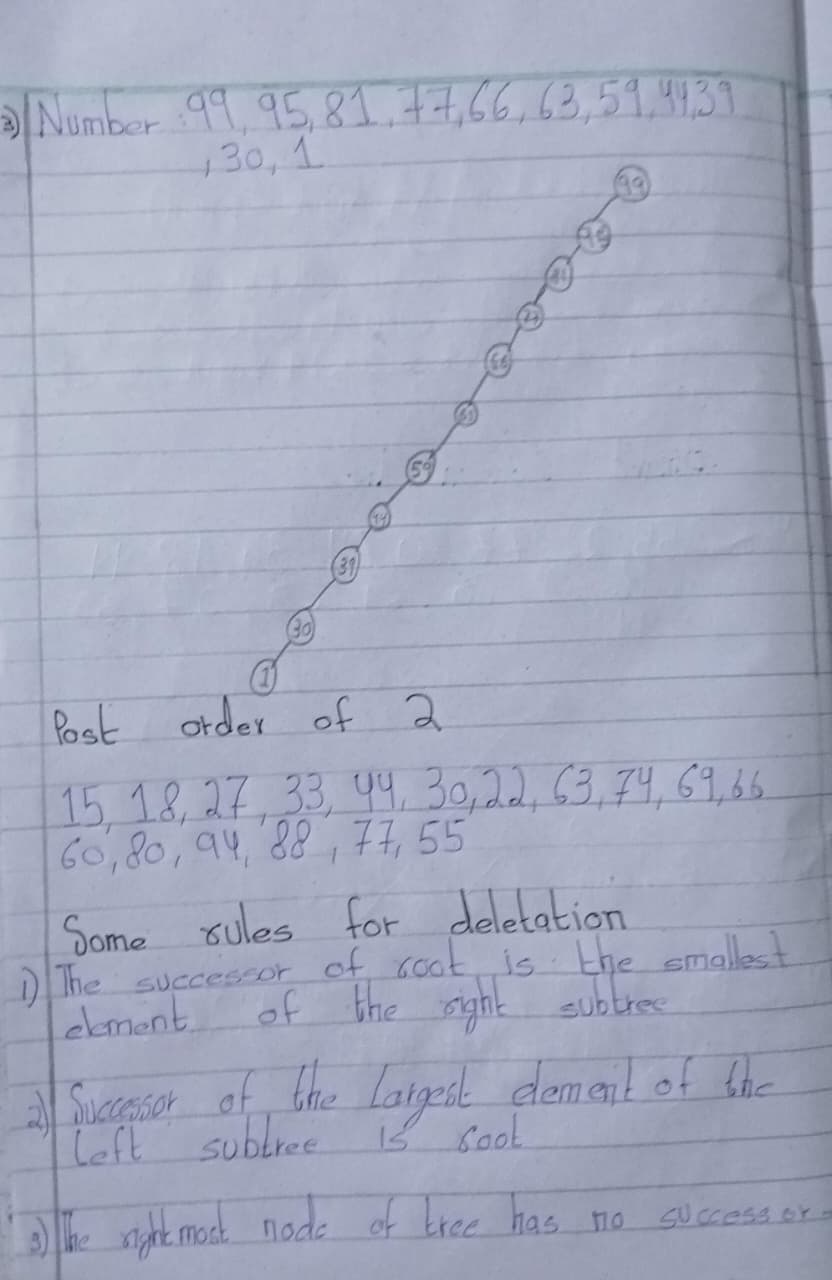 3) Number : 99, 95, 81, 77, 66, 63, 59, 44, 39
, 30, 1
99
95
81
77
66
63
59
44
39
30
1
Post order of 2
15, 18, 27, 33, 44, 30, 22, 63, 74, 69, 66
60, 80, 94, 88, 77, 55
Some rules for deletation
1) The successor of root is the smallest
element of the right subtree
2) Successor of the largest element of the
left subtree is root
3) The rightmost node of tree has no successor